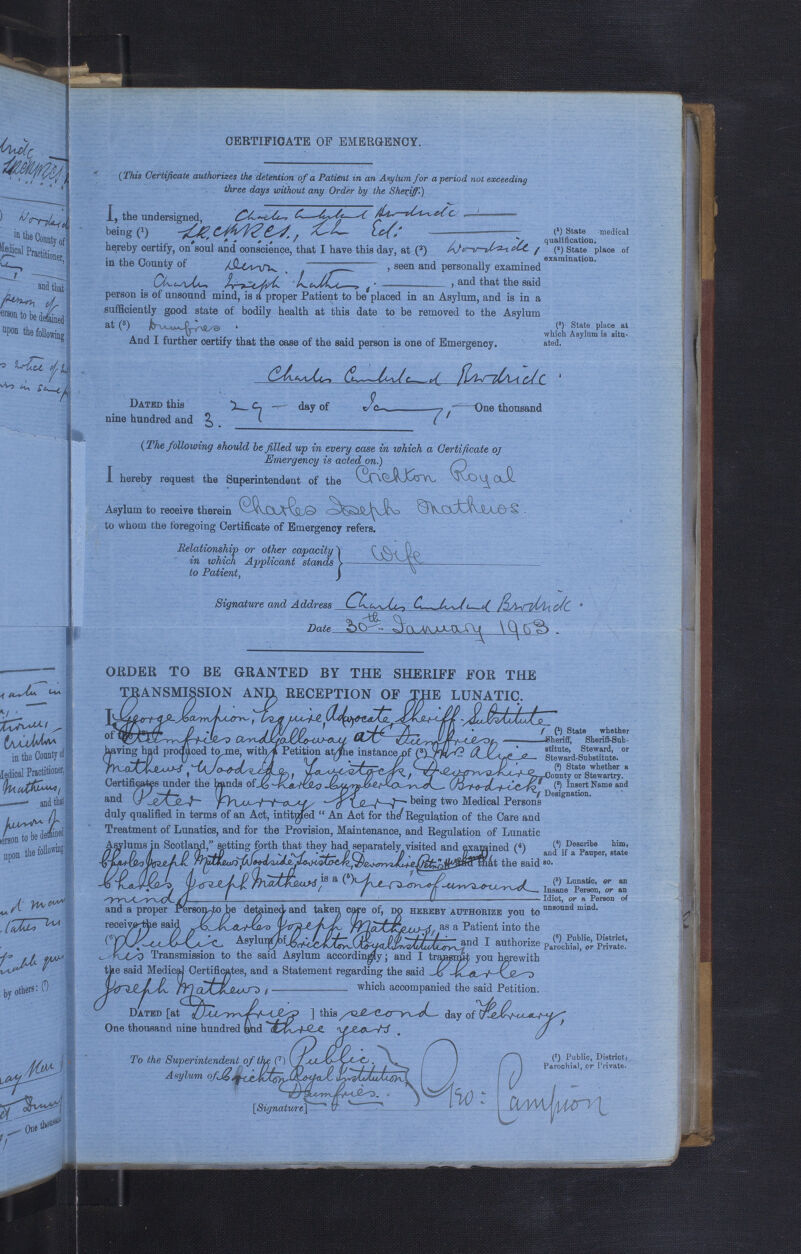 CERTIFICATE OF EMERGENCY.
(This Certificate authorizes the detention of a Patient in an Asylum for a period not exceeding
three days without any Order by the Sheriff.)
I, the undersigned, Charles Cumberland Brodrick
being (1) L.R.C.P. & R.C.S., L.M. Ed:
hereby certify, on soul and conscience, that I have this day, at (2) Woodside,
in the County of Devon , seen and personally examined
Charles Joseph Mathews, , and that the said
person is of unsound mind, is a proper Patient to be placed in an Asylum, and is in a
sufficiently good state of bodily health at this date to be removed to the Asylum
at (3) Dumfries.
And I further certify that the case of the said person is one of Emergency.
(1) State medical
qualification.
(2) State place of
examination.
(3) State place at
which Asylum is situ-
ated.
Charles Cumberland Brodrick.
DATED this 29 day of January, One thousand
nine hundred and 3.
(The following should be filled up in every case in which a Certificate of
Emergency is acted on.)
I hereby request the Superintendent of the Crichton Royal
Asylum to receive therein Charles Joseph Mathews.
to whom the foregoing Certificate of Emergency refers.
Relationship or other capacity
in which Applicant stands
to Patient,
} Wife
Signature and Address Charles Cumberland Brodrick.
Date 30th January 1903.
ORDER TO BE GRANTED BY THE SHERIFF FOR THE
TRANSMISSION AND RECEPTION OF THE LUNATIC.
I, George Campion, Esquire, Advocate, Sheriff-Substitute
of Dumfries and Galloway at Dumfries,
having had produced to me, with a Petition at the instance of (3) Mrs. Alice
Mathews, Woodside, Tavistock, Devonshire,
Certificates under the hands of Charles Cumberland Brodrick,
and Peter Murray Kerr being two Medical Persons
duly qualified in terms of an Act, intituled "An Act for the Regulation of the Care and
Treatment of Lunatics, and for the Provision, Maintenance, and Regulation of Lunatic
Asylums in Scotland," setting forth that they had separately visited and examined (4)
Charles Joseph Mathews, Woodside, Tavistock, Devonshire, and that the said
Charles Joseph Mathews, is a (5) person of unsound
mind
and a proper Person to be detained and taken care of, DO HEREBY AUTHORIZE you to
receive the said Charles Joseph Mathews, as a Patient into the
(6) Public Asylum of Crichton Royal Institution, and I authorize
his Transmission to the said Asylum accordingly; and I transmit you herewith
the said Medical Certificates, and a Statement regarding the said Charles
Joseph Mathews, which accompanied the said Petition.
(1) State whether
Sheriff, Sheriff-Sub-
stitute, Steward, or
Steward-Substitute.
(2) State whether a
County or Stewartry.
(3) Insert Name and
Designation.
(4) Describe him,
and if a Pauper, state
so.
(5) Lunatic, or an
Insane Person, or an
Idiot, or a Person of
unsound mind.
(6) Public, District,
Parochial, or Private.
DATED [at Dumfries ] this second day of February,
One thousand nine hundred and three years.
To the Superintendent of the (7) Public
Asylum of Crichton Royal Institution,
Dumfries.
[Signature] Geo: Campion
(7) Public, District,
Parochial, or Private.
in the County of
Medical Practitioner,
and that
person of
person to be detained
upon the following
in the County of
Medical Practitioner,
Mathews,
and that
person of
person to be detained
upon the following
by others: (7)
One thousand